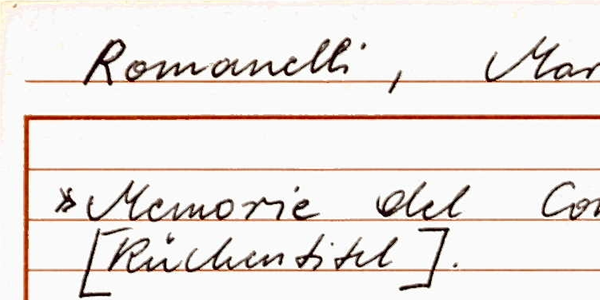 Romanelli, Mar
»Memorie del Con
[Rückentitel].